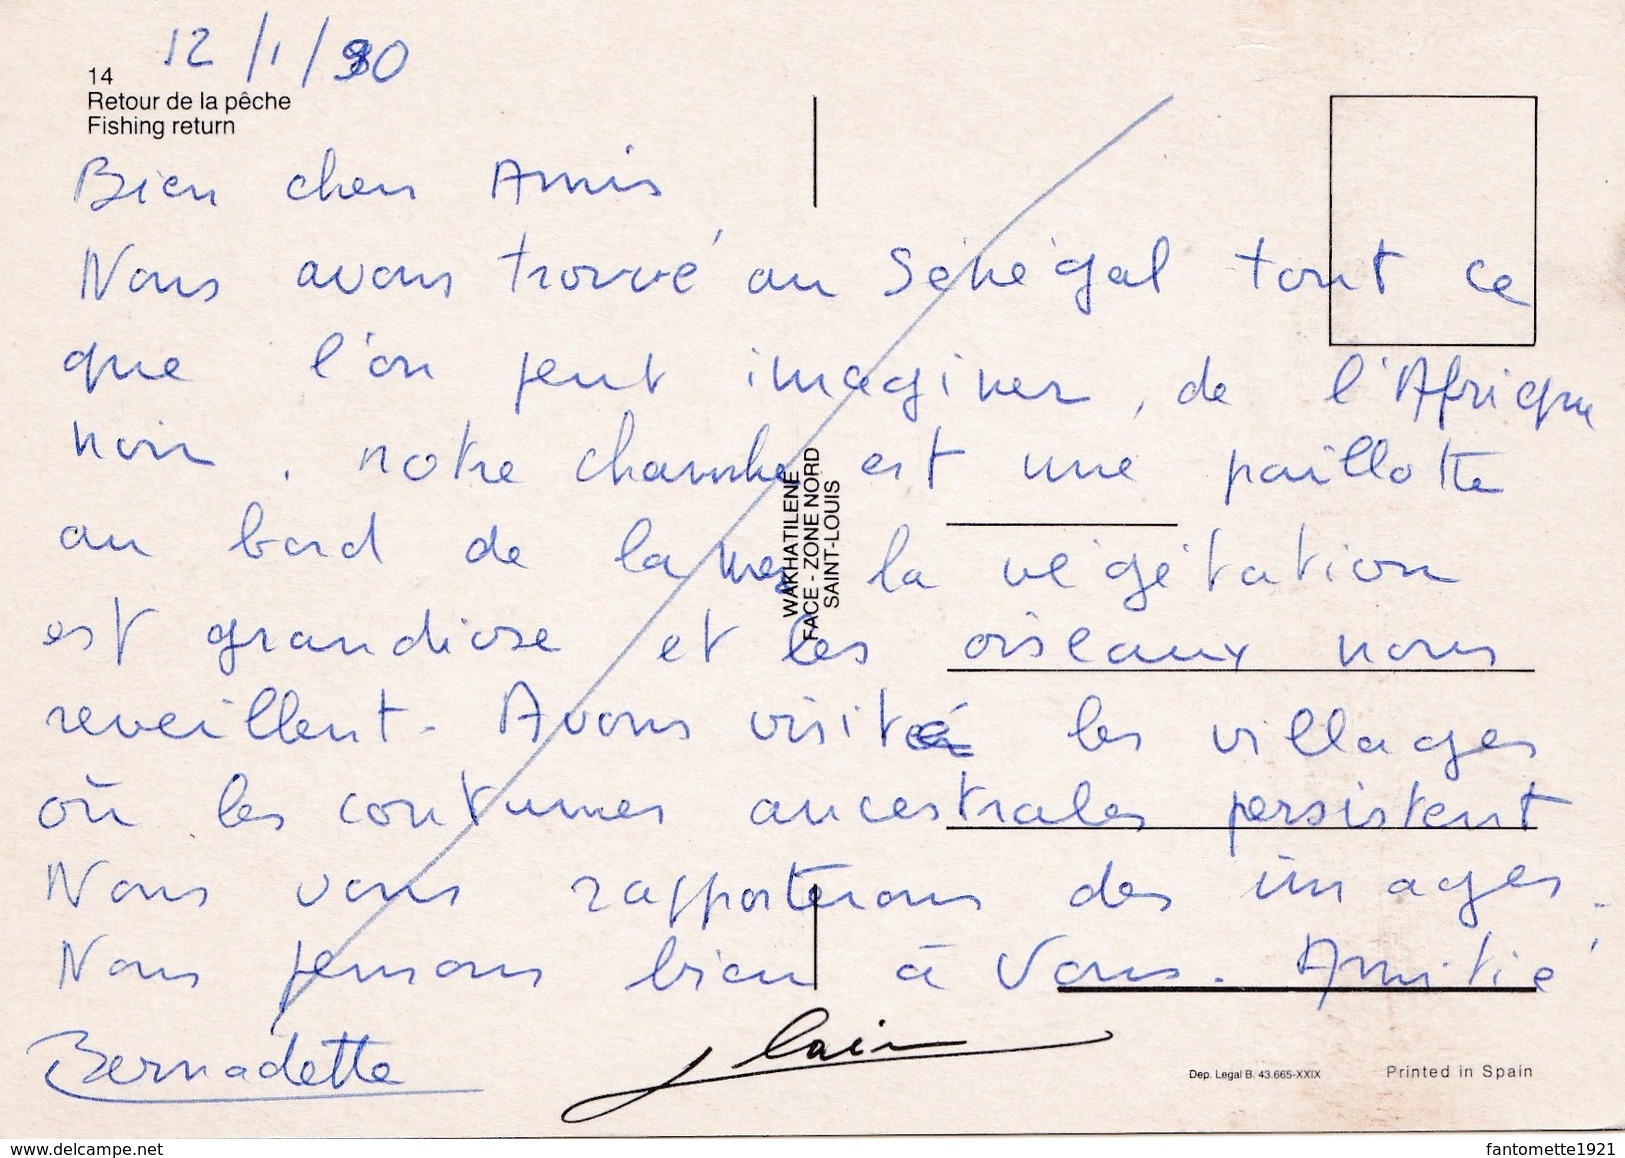 12/1/90
14
Retour de la pêche
Fishing return
Bien chers Amis
Nous avons trouvé au Sénégal tout ce
que l'on peut imaginer, de l'Afrique
noire, notre chambre est une paillotte
au bord de la mer la végétation
est grandiose et les oiseaux nous
reveillent. Avons visité les villages
où les coutumes ancestrales persistent
Nous vous rapporterons des images.
Nous pensons bien à Vous. Amitié
Bernadette
WAKHATILENE
FACE - ZONE NORD
SAINT-LOUIS
Dep. Legal B. 43.665-XXIX
Printed in Spain
www.delcampe.net
fantomette1921